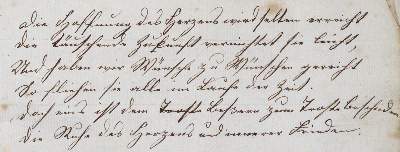 Die Hoffnung des Herzens wird selten erreicht
Die täuschende Zukunft vernichtet sie leicht,
Und haben wir Wünsche zu Wünschen gereiht
So fliehen sie alle im Laufe der Zeit.
Doch uns ist dem Bessern zum Troste beschieden
Die Ruhe des Herzens und innerer Frieden.